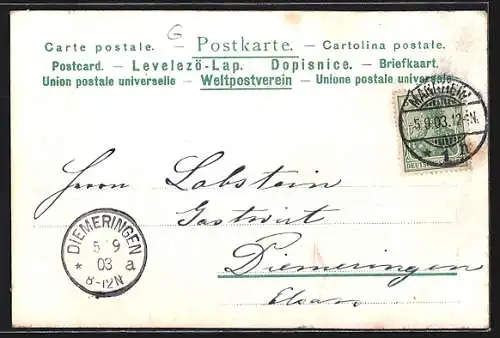 G
Carte postale. — Postkarte. — Cartolina postale.
Postcard. — Levelezö-Lap. Dopisnice. — Briefkaart.
Union postale universelle — Weltpostverein — Unione postale universale
MANNHEIM
5.9.03.12-1N.
* 1 h
Herrn Lobstein
Gastwirt
Diemeringen
Elsass
DIEMERINGEN
5 9
* 03 a
8-12N